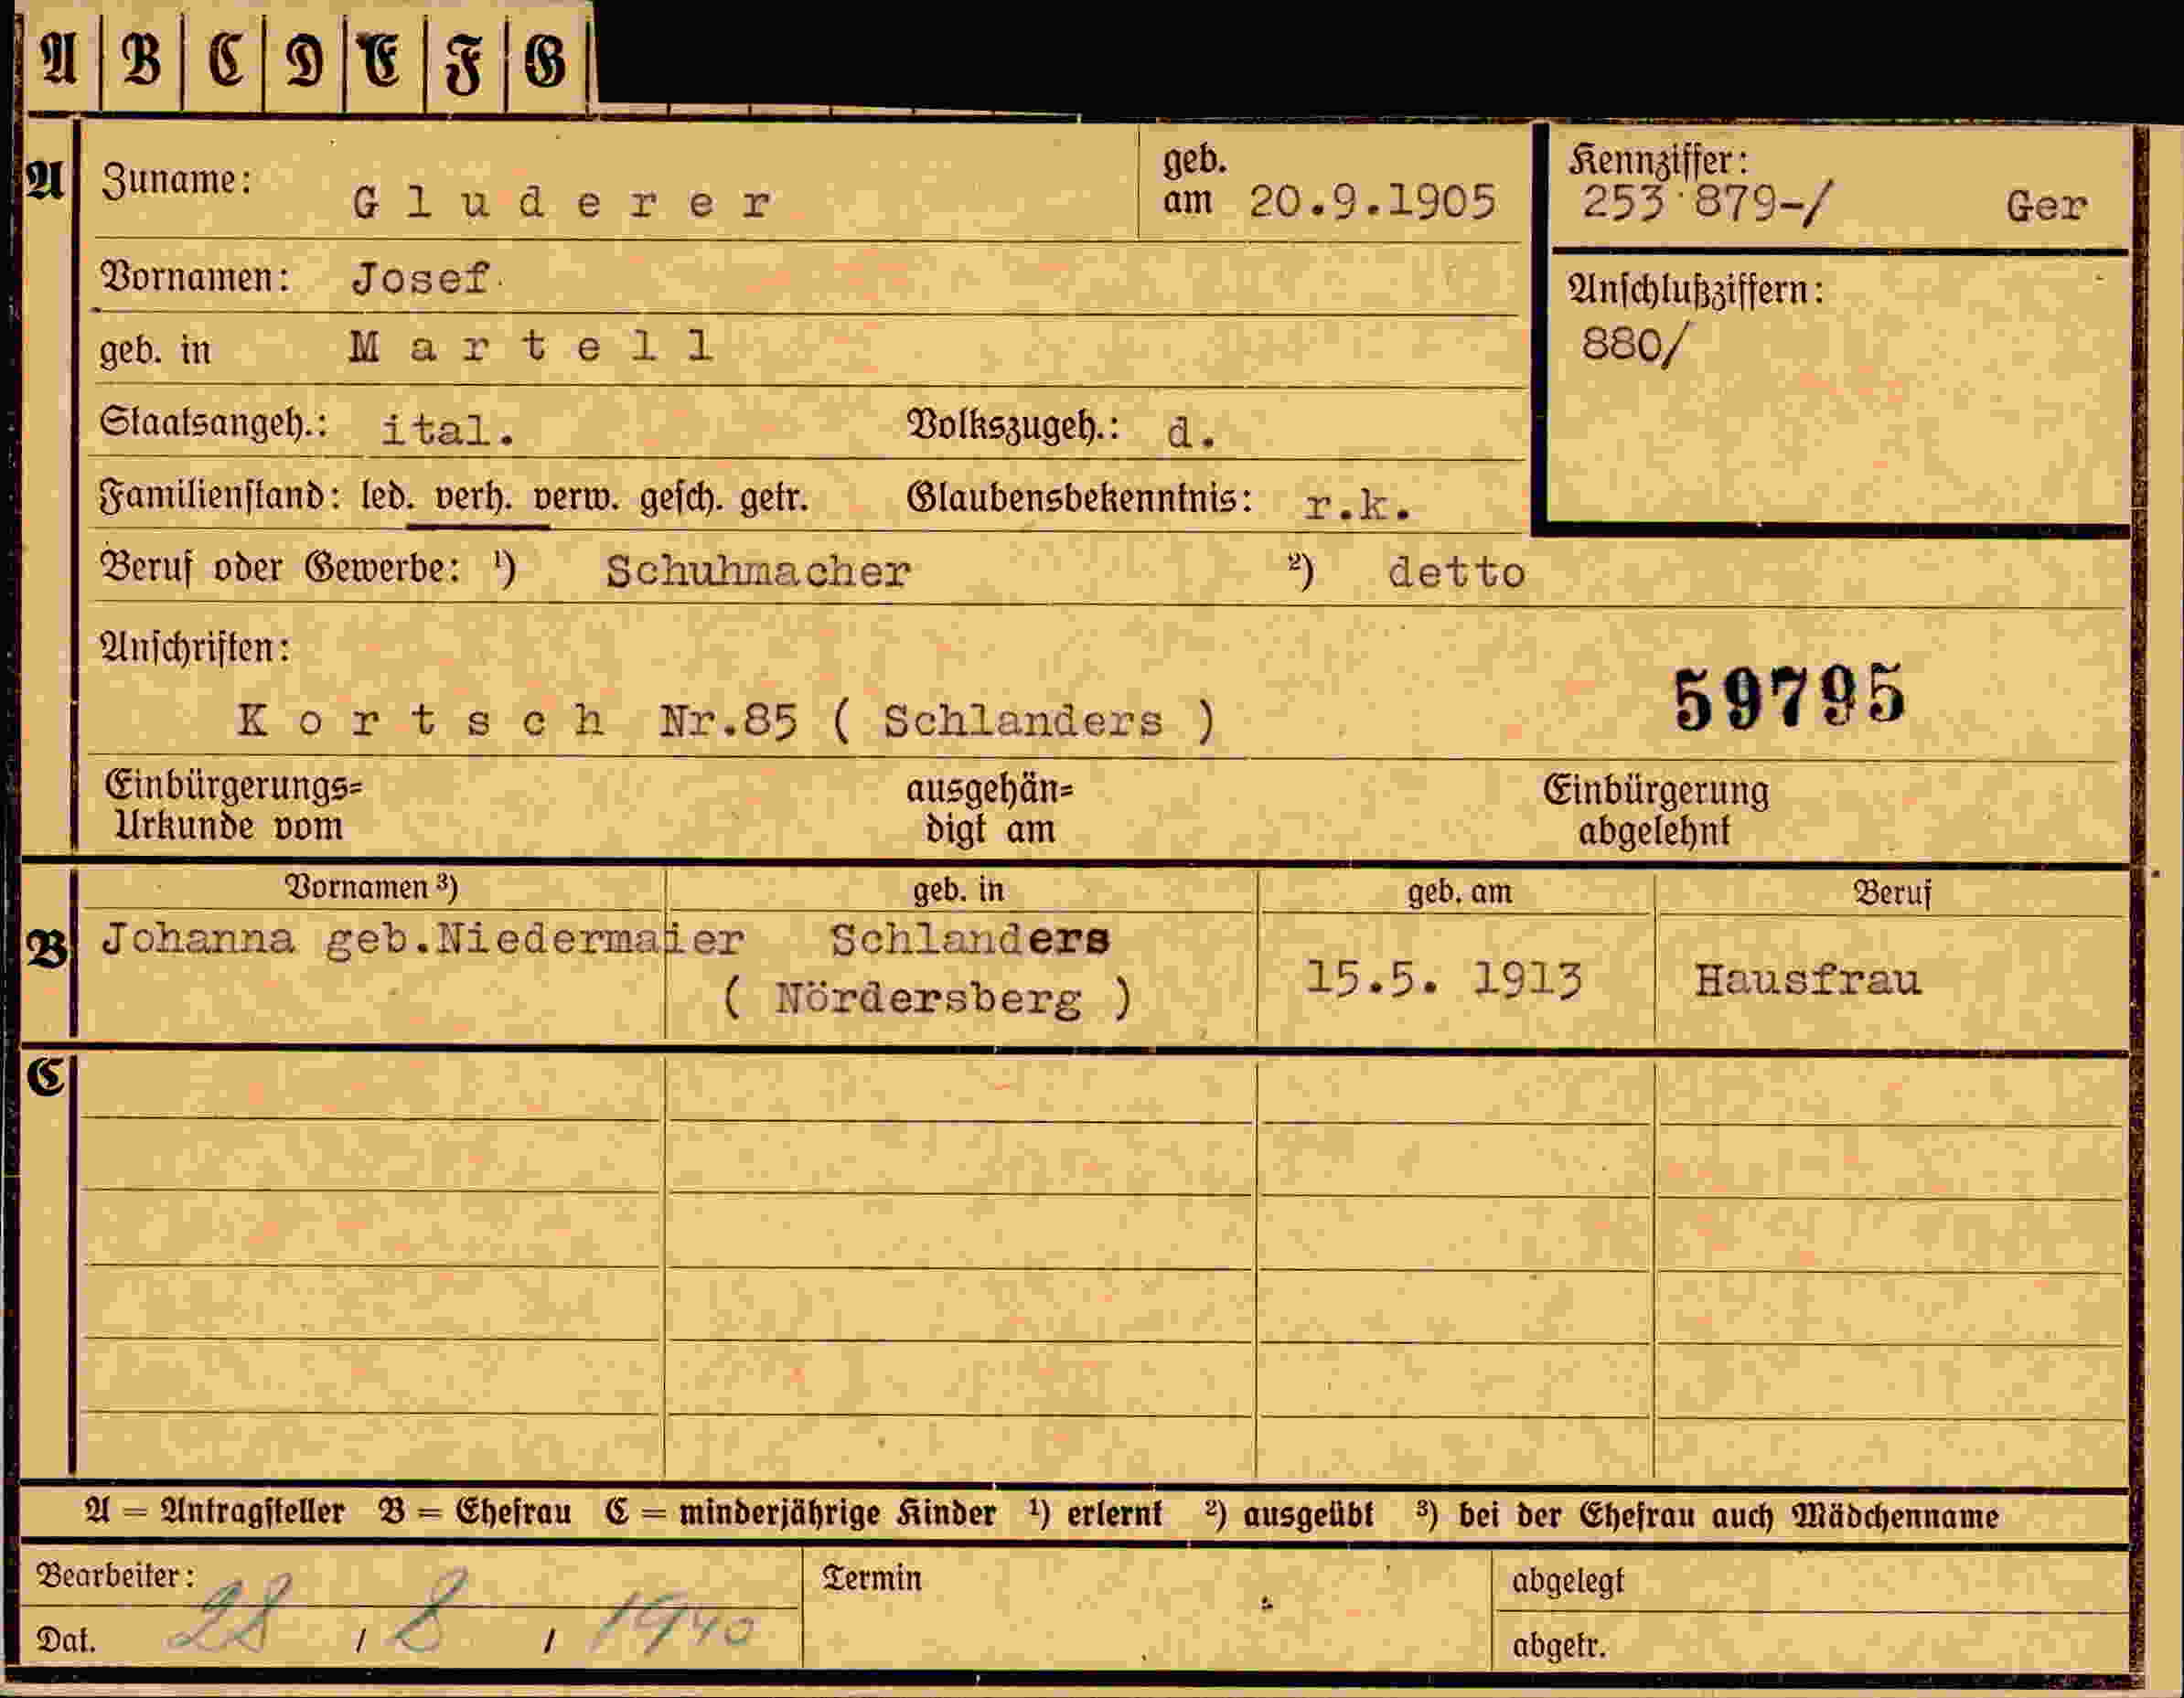 A B C D E F G
A Zuname: Gluderer geb. am 20.9.1905 Kennziffer: 253 879-/ Ger
Vornamen: Josef Anschlußziffern: 880/
geb. in Martell
Staatsangeh.: ital. Volkszugeh.: d.
Familienstand: led. verh. verw. gesch. getr. Glaubensbekenntnis: r.k.
Beruf oder Gewerbe: ¹) Schuhmacher ²) detto
Anschriften:
59795
Kortsch Nr.85 ( Schlanders )
Einbürgerungs= ausgehän= Einbürgerung
Urkunde vom digt am abgelehnt
Vornamen ³) geb. in geb. am Beruf
B Johanna geb.Niedermaier Schlanders
( Nördersberg ) 15.5. 1913 Hausfrau
C
A = Antragsteller B = Ehefrau C = minderjährige Kinder ¹) erlernt ²) ausgeübt ³) bei der Ehefrau auch Mädchenname
Bearbeiter: Termin abgelegt
Dat. 28 / 8 / 1940 abgetr.